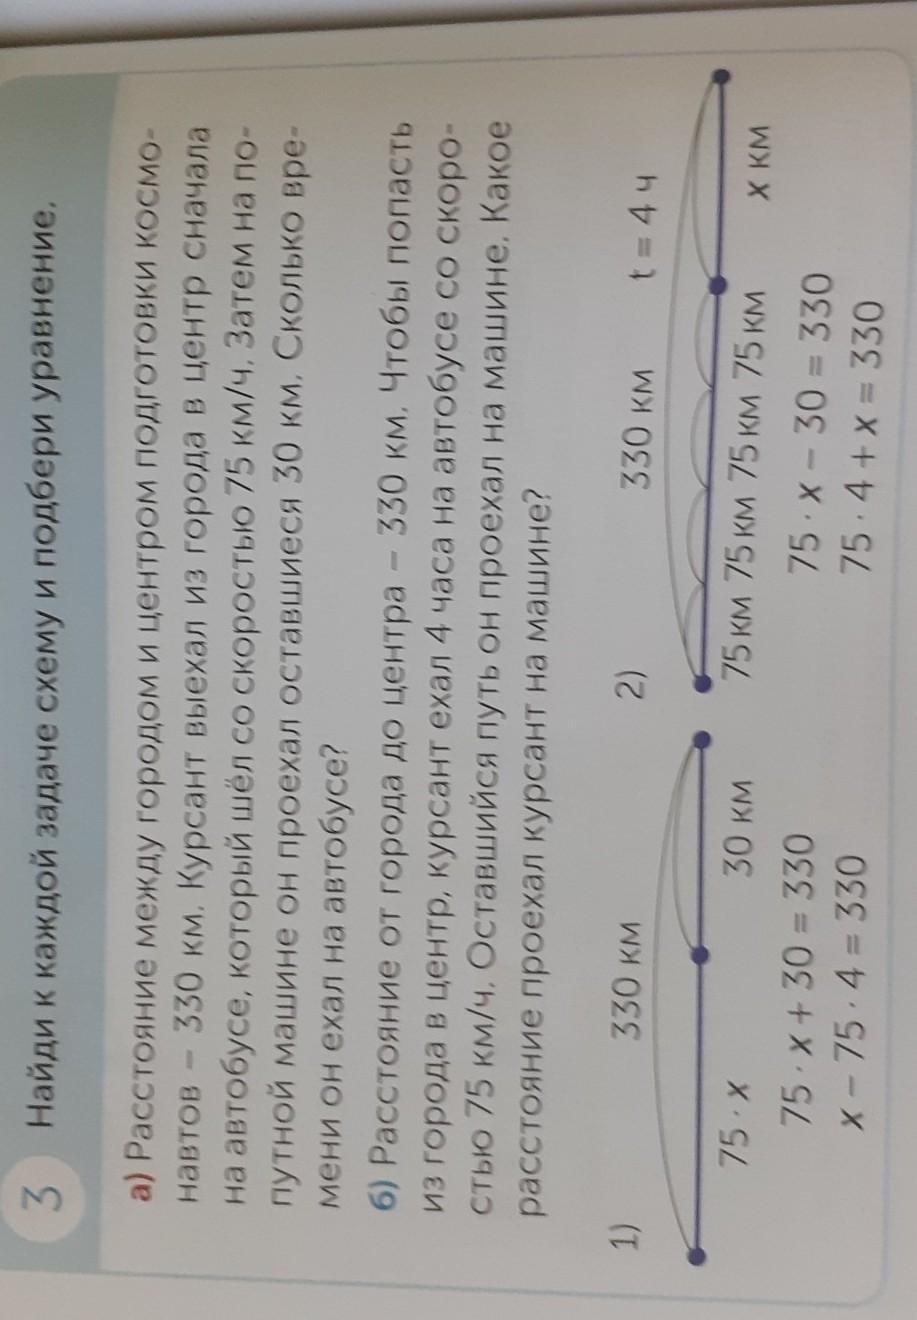 3 Найди к каждой задаче схему и подбери уравнение.
а) Расстояние между городом и центром подготовки космо-
навтов – 330 км. Курсант выехал из города в центр сначала
на автобусе, который шёл со скоростью 75 км/ч. Затем на по-
путной машине он проехал оставшиеся 30 км. Сколько вре-
мени он ехал на автобусе?
б) Расстояние от города до центра – 330 км. Чтобы попасть
из города в центр, курсант ехал 4 часа на автобусе со скоро-
стью 75 км/ч. Оставшийся путь он проехал на машине. Какое
расстояние проехал курсант на машине?
1)
330 км
75 · x
30 км
75 · x + 30 = 330
x – 75 · 4 = 330
2)
330 км
t = 4 ч
75 км 75 км 75 км 75 км
x км
75 · x – 30 = 330
75 · 4 + x = 330